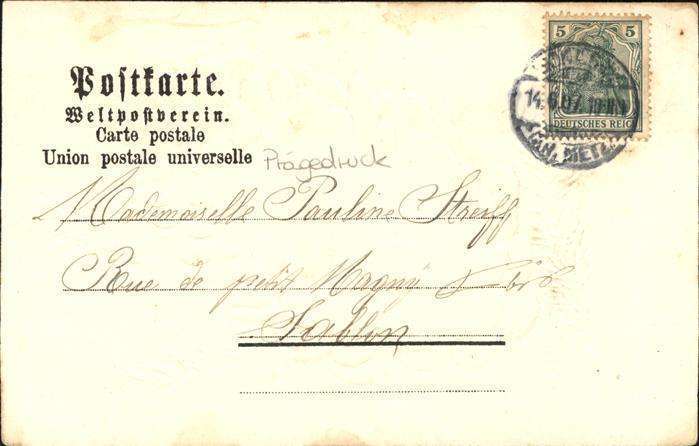 Postkarte.
Weltpostverein.
Carte postale
Union postale universelle
Prägedruck
5 5
DEUTSCHES REICH
14.6.07.
Mademoiselle Pauline Streiff
Rue de petit Magni
Sablon